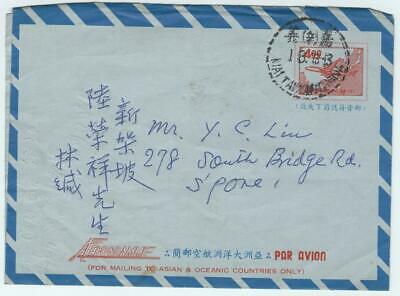 4.00
新架坡
陸榮祥先生
林緘
Mr. Y. C. Liu
278 South Bridge Rd.
S'pore 1
AEROGRAMME
亞洲大洋洲航空郵簡
PAR AVION
(FOR MAILING TO ASIAN & OCEANIC COUNTRIES ONLY)